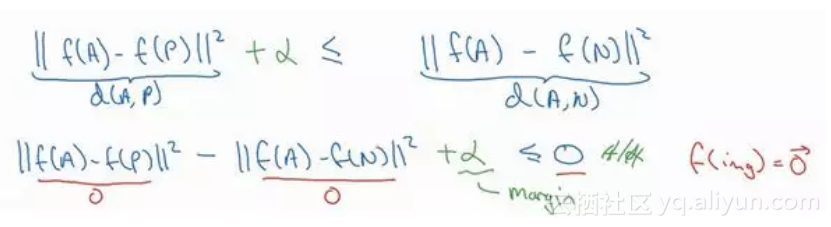 ‖f(A) - f(P)‖² + α ≤ ‖f(A) - f(N)‖²
d(A,P) d(A,N)
‖f(A) - f(P)‖² - ‖f(A) - f(N)‖² + α ≤ 0 f(img) = 0⃗
0 0 margin
栖社区 yq.aliyun.com